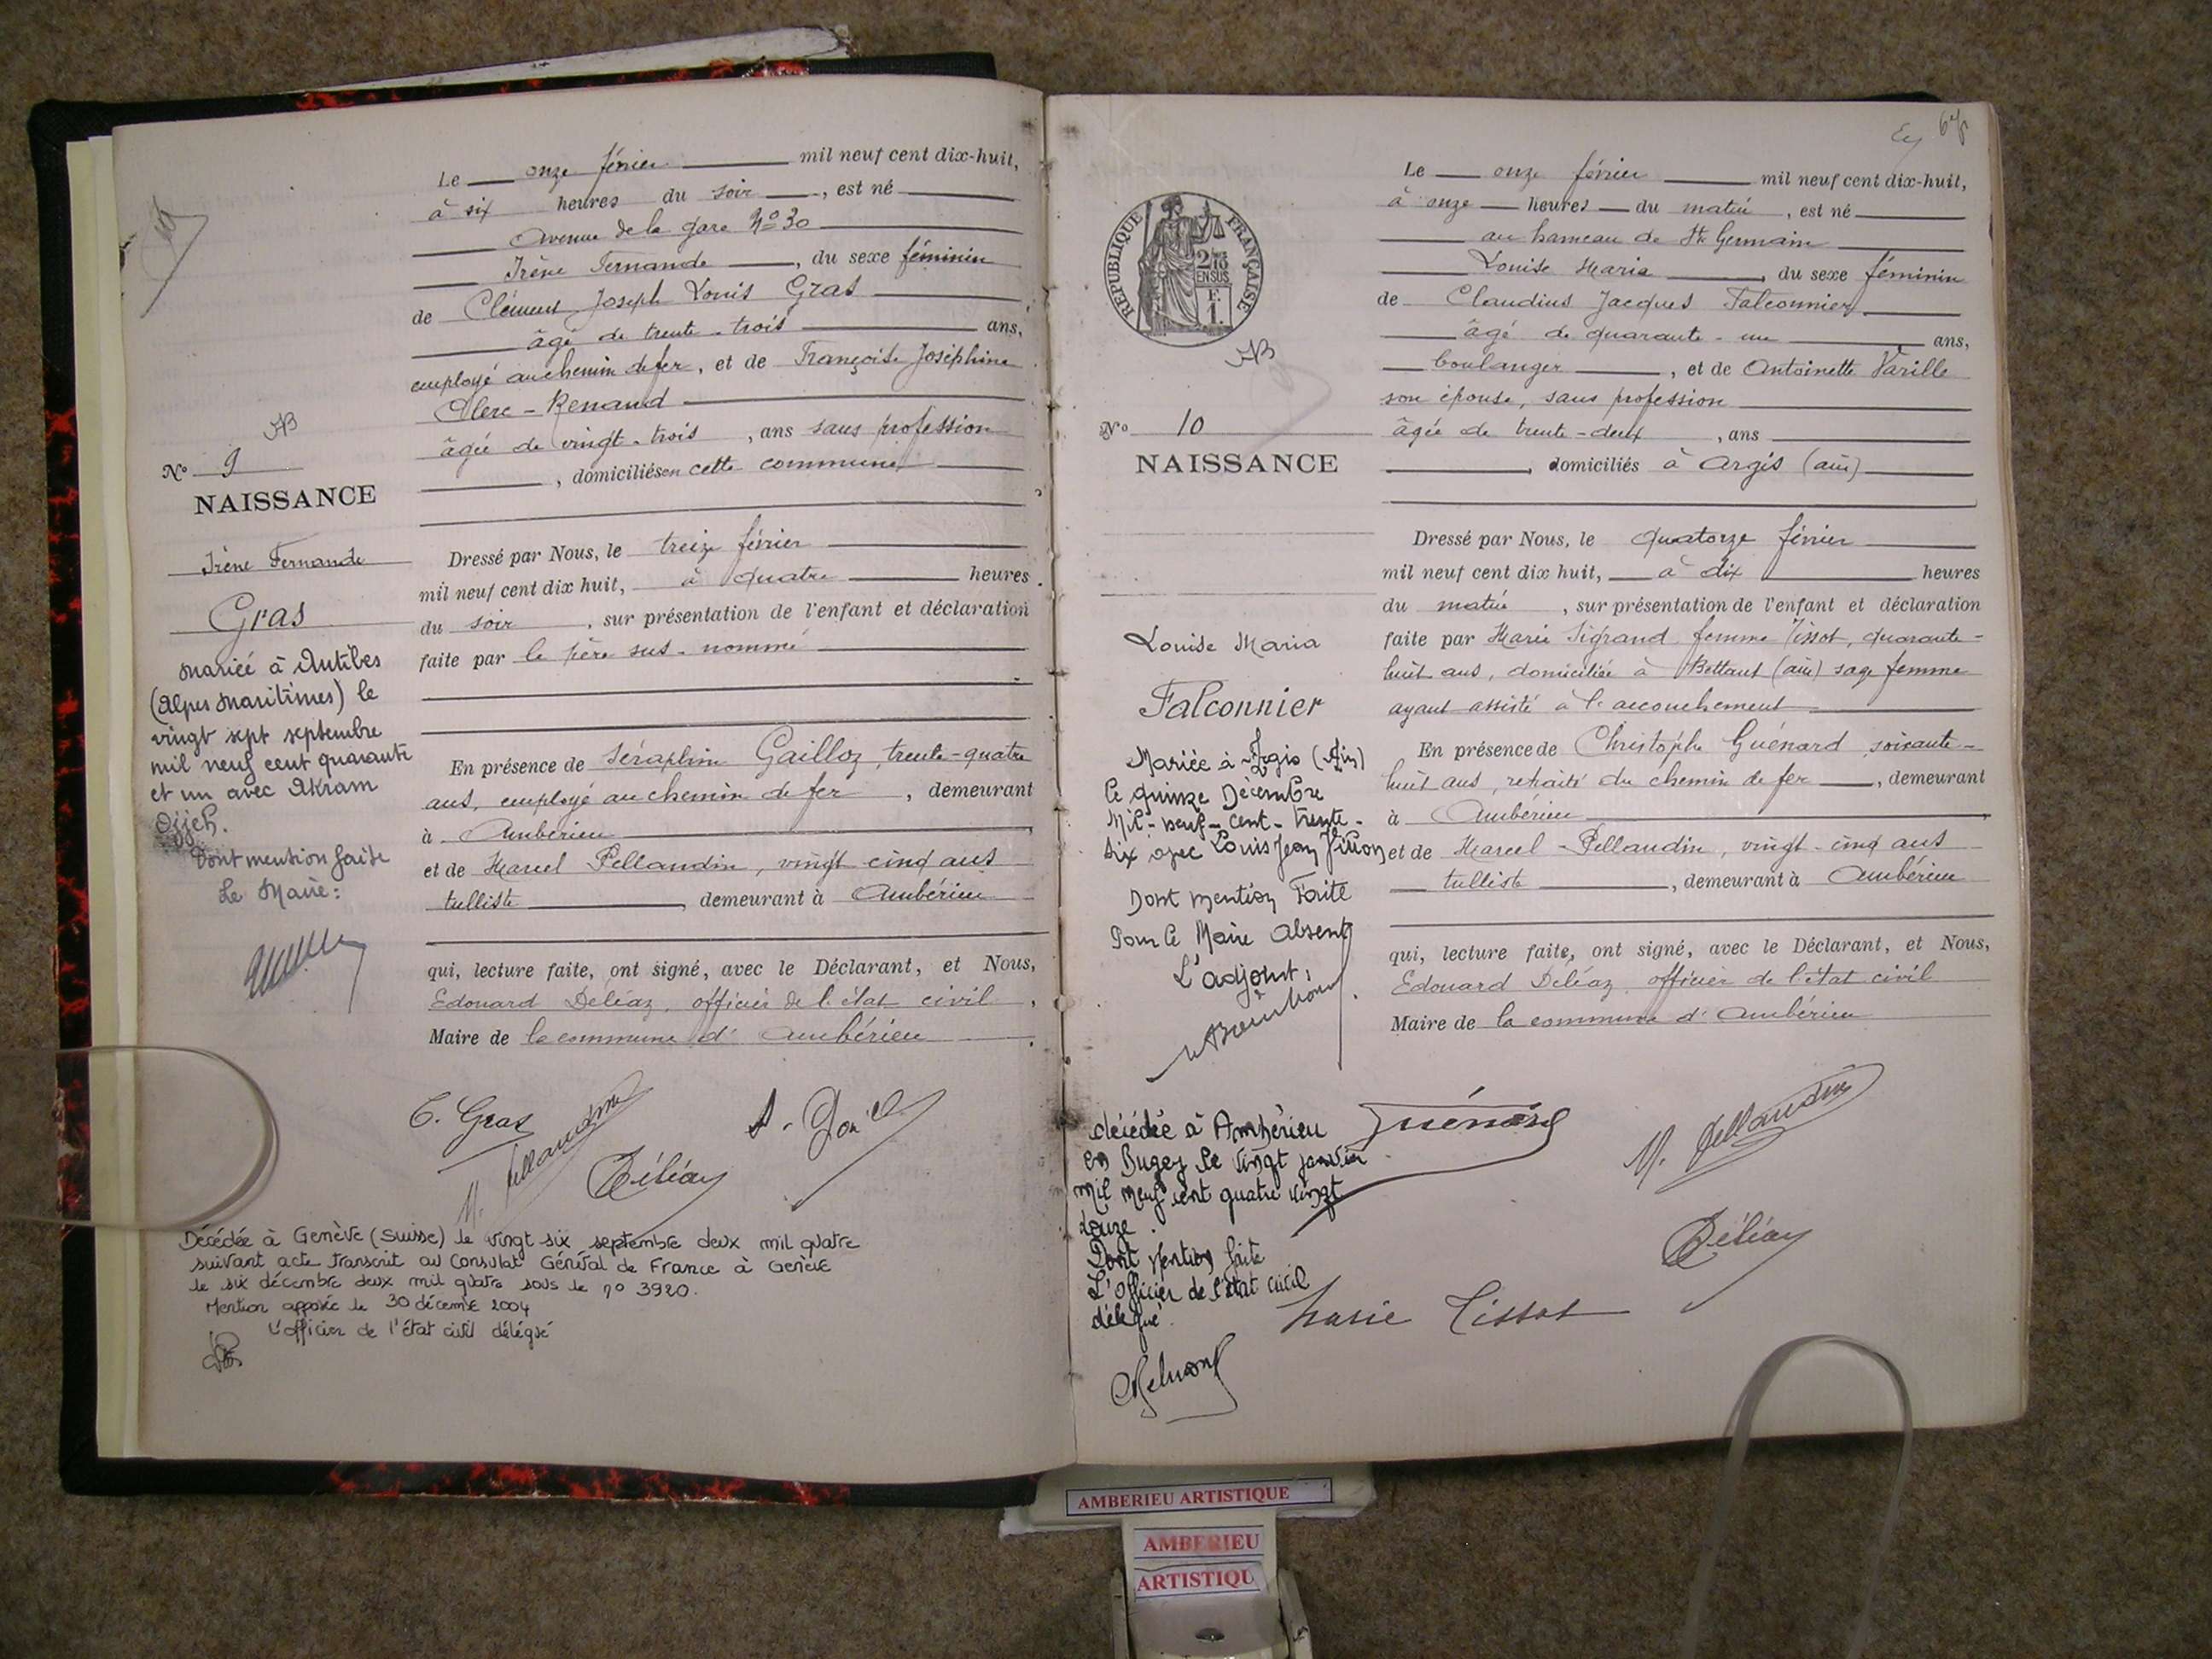 Le onze février mil neuf cent dix-huit,
à six heures du soir, est né
Avenue de la gare No 30
Irène Fernande, du sexe féminin
de Clément Joseph Louis Gras
âgé de trente-trois ans,
employé au chemin de fer, et de Françoise Joséphine
Clerc-Renaud
âgée de vingt-trois, ans sans profession
, domiciliés en cette commune
No 9
NAISSANCE
Irène Fernande
Gras
Mariée à Antibes
(Alpes Maritimes) le
vingt sept septembre
mil neuf cent quarante
et un avec Akram
Ojjeh.
Dont mention faite
Le Maire:
Dressé par Nous, le treize février
mil neuf cent dix huit, à quatre heures
du soir, sur présentation de l'enfant et déclaration
faite par le père sus-nommé
En présence de Séraphin Gailloz, trente-quatre
ans, employé au chemin de fer, demeurant
à Ambérieu
et de Marcel Pellaudin, vingt cinq ans
tulliste, demeurant à Ambérieu
qui, lecture faite, ont signé, avec le Déclarant, et Nous,
Edouard Deléaz, officier de l'état civil,
Maire de la commune d'Ambérieu
C. Gras
M. Pellaudin
Deléaz
Décédée à Genève (Suisse) le vingt six septembre deux mil quatre
suivant acte transcrit au Consulat Général de France à Genève
le six décembre deux mil quatre sous le no 3920.
Mention apposée le 30 décembre 2004
L'officier de l'état civil délégué
67
REPUBLIQUE FRANÇAISE
2/10 EN SUS
1F.
Le onze février mil neuf cent dix-huit,
à onze heures du matin, est né
au hameau de St Germain
Louise Maria, du sexe féminin
de Claudius Jacques Falconnier
âgé de quarante-un ans,
boulanger, et de Antoinette Varille
son épouse, sans profession
âgée de trente-deux, ans
, domiciliés à Argis (ain)
No 10
NAISSANCE
Louise Maria
Falconnier
Mariée à Argis (Ain)
le quinze Décembre
Mil-neuf-cent-trente-
six avec Louis Jean
Dont mention Faite
Pour le Maire Absent
L'adjoint:
Dressé par Nous, le quatorze février
mil neuf cent dix huit, à dix heures
du matin, sur présentation de l'enfant et déclaration
faite par Marie Sigrand femme Tissot, quarante-
huit ans, domiciliée à Bettant (ain) sage femme
ayant assisté à l'accouchement
En présence de Christophe Guénard soixante-
huit ans, retraité du chemin de fer, demeurant
à Ambérieu
et de Marcel Pellaudin, vingt-cinq ans
tulliste, demeurant à Ambérieu
qui, lecture faite, ont signé, avec le Déclarant, et Nous,
Edouard Deléaz, officier de l'état civil
Maire de la commune d'Ambérieu
Guénard
M. Pellaudin
Deléaz
Marie Tissot
décédée à Ambérieu
en Bugey le vingt janvier
mil neuf cent quatre vingt
douze.
Dont mention faite
L'Officier de l'état civil
délégué.
AMBERIEU ARTISTIQUE
AMBERIEU
ARTISTIQU